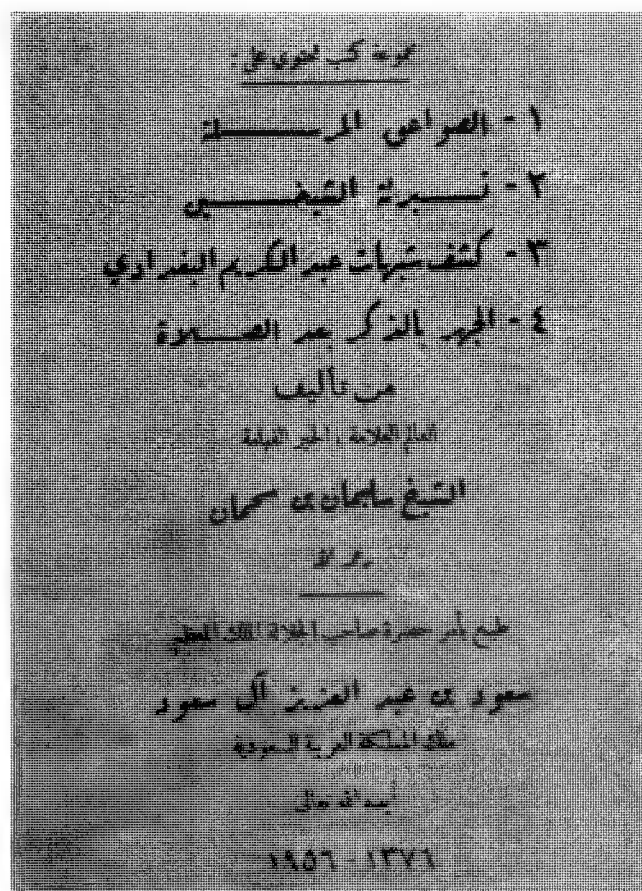 مجموعة كتب تحتوي على :
١ - الصواعق المرسلة
٢ - تبرئة الشيخين
٣ - كشف شبهات عبد الكريم البغدادي
٤ - الجهر بالذكر بعد الصلاة
من تأليف
العالم العلامة ، الحبر الفهامة
الشيخ سليمان بن سحمان
رحمه الله
طبع بأمر حضرة صاحب الجلالة الملك المعظم
سعود بن عبد العزيز آل سعود
ملك المملكة العربية السعودية
أيده الله تعالى
١٣٧٦ - ١٩٥٦